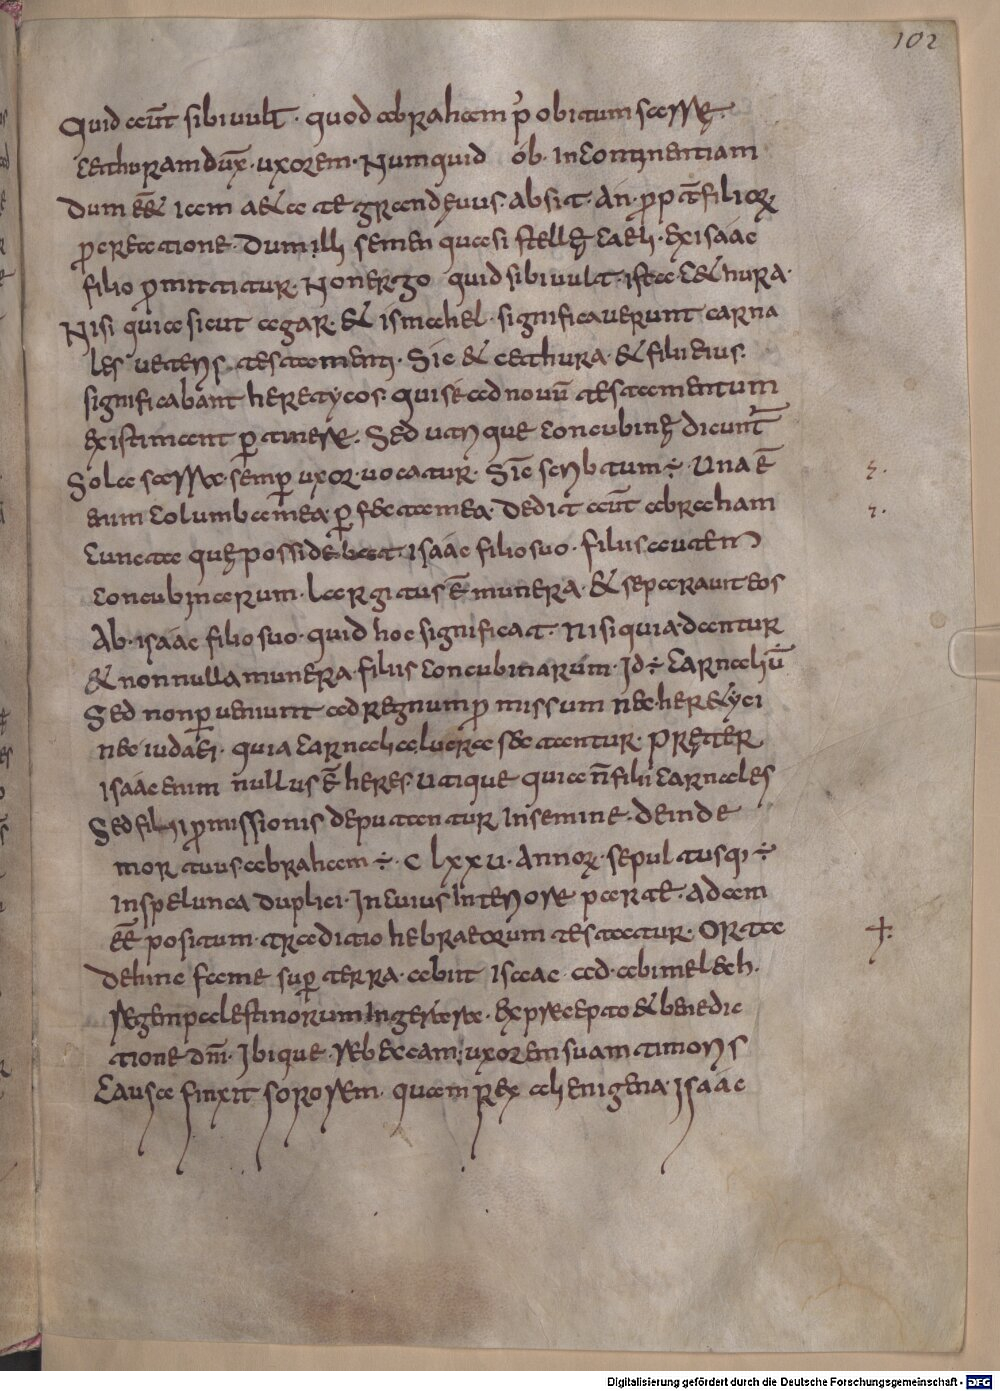 102
Quid aut̄ sibi uult. quod abraham p̓ obitum sarre.
cethuram dux̄. uxorem. Numquid ob. incontinentiam
dum eēt iam aetate grandęuus. absit. An. ꝓpt̄ filiorꝫ
ꝓcreatione. dum illi semen quasi stellę caeli. ex isaác
filio ꝓmittitur. Non ergo quid sibi uult. ista cethura.
Nisi quia sicut agar. & ismahel. significauerunt carna
les ueteris testamenti. Sic & cethura. & filii eius.
significabant heretycos. qui sé ad nouū testamentum
existimant ꝑtinere. Sed utrique concubinę dicunt̄
Sola sarra. semꝑ uxor. uocatur. Sic̄ scribtum ÷. Una ē
enim columba mea. ꝑfecta mea. Dedit aut̄ abraham
cuncta quę possidebat. isaác filio suo. filius autem
concubinarum. largitus ē munera. & separauit eos
Ab. isaác filio suo. quid hoc significat. nisi quia. dantur
& non nulla munera. filiis concubinarum. Id ÷ carnalibū
Sed non ꝑueniunt ad regnum ꝓmissum nec. heretyci
nec iudaei. quia carnali luerce sectantur. pręter
isaác enim nullus ē heres. utique quia n̄ filii carnales
Sed filii ꝓmissionis deputantur in semine. deinde
mortuus abraham ÷. clxxu. Annorꝫ. sepultusqꝫ ÷
in spelunca duplici. In cuius interiore parte. adam
eē positum. traditio hebraeorum testatur. Orta
dehinc fame suꝑ terra. abiit isaac. ad. abimelech.
regem palestinorum in gerare. ex precepto & benedic
tione dn̄i. Ibique. rebeccam. uxorem suam timoris
causa finxit sororem. quam rex alienigena. isaác
Digitalisierung gefördert durch die Deutsche Forschungsgemeinschaft - DFG